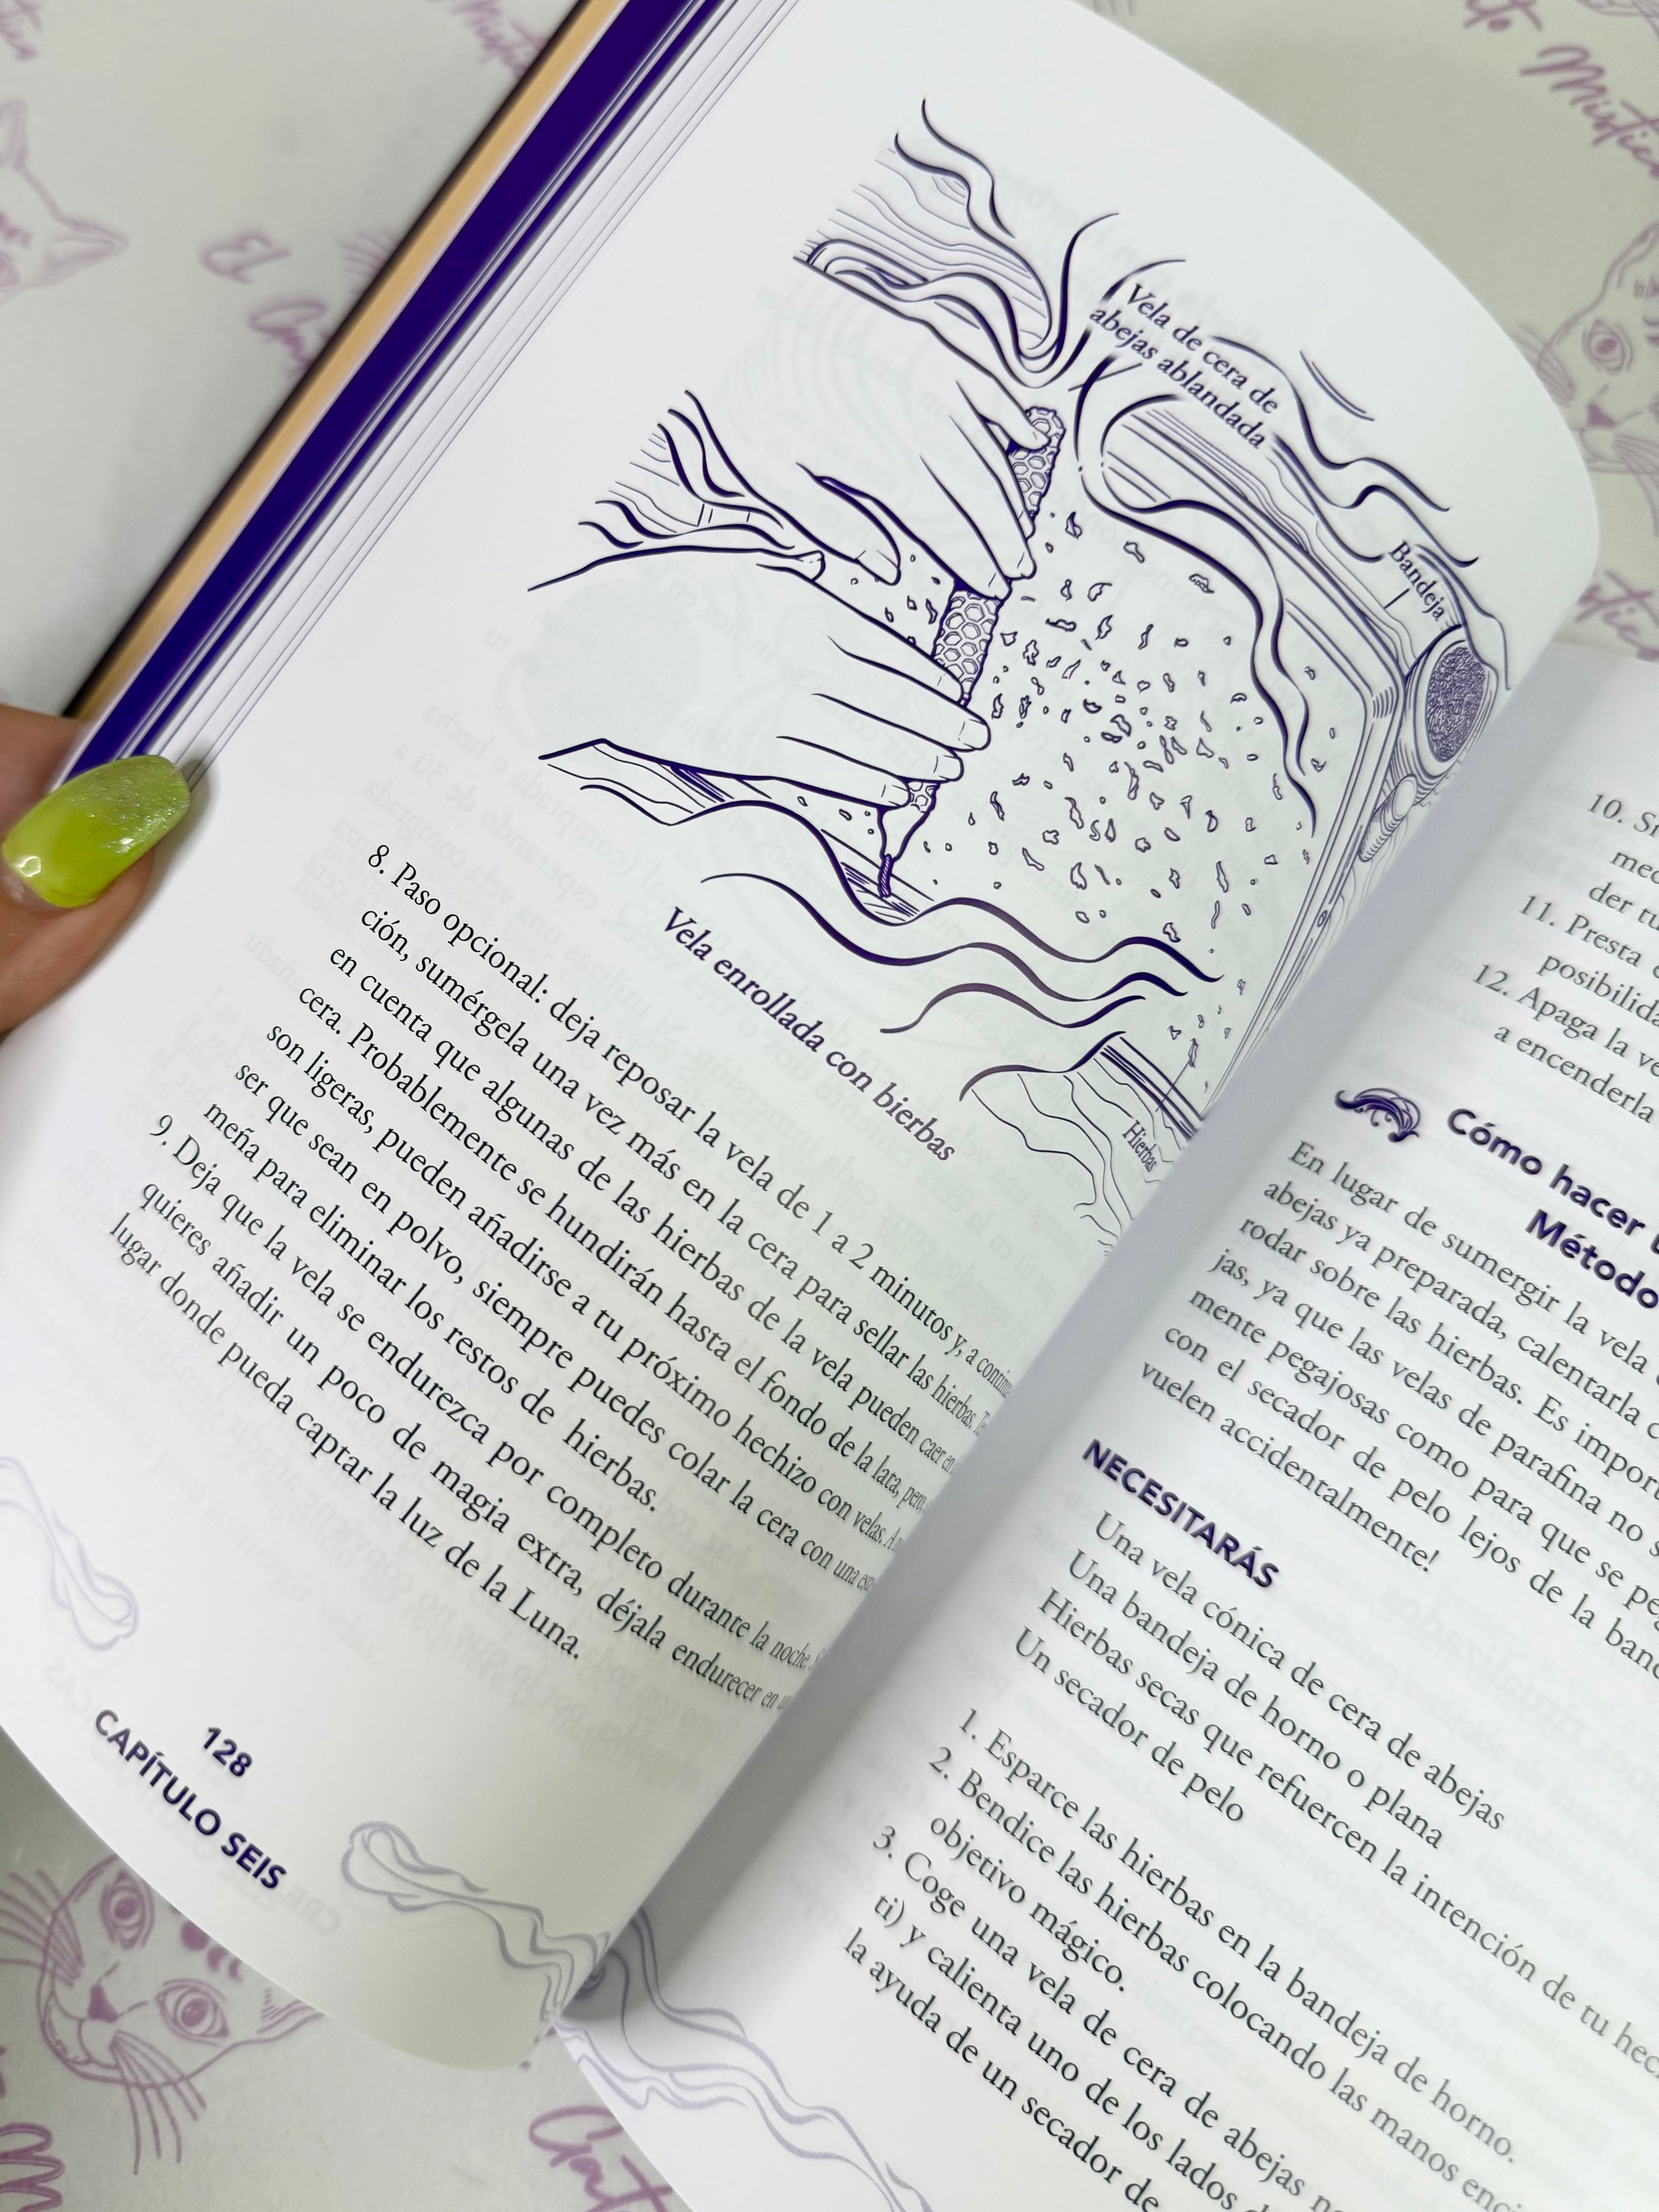 Vela de cera de
abejas ablandada
Bandeja
Hierbas
Vela enrollada con hierbas
8. Paso opcional: deja reposar la vela de 1 a 2 minutos y, a continua
ción, sumérgela una vez más en la cera para sellar las hierbas.
en cuenta que algunas de las hierbas de la vela pueden caer en
cera. Probablemente se hundirán hasta el fondo de la lata, pero,
son ligeras, pueden añadirse a tu próximo hechizo con velas. A
ser que sean en polvo, siempre puedes colar la cera con una
meña para eliminar los restos de hierbas.
9. Deja que la vela se endurezca por completo durante la noche.
quieres añadir un poco de magia extra, déjala endurecer en
lugar donde pueda captar la luz de la Luna.
128
CAPÍTULO SEIS
10.
der
11. Presta
posibilida
12. Apaga la
a encenderla
Cómo hacer
Método
En lugar de sumergir la vela
abejas ya preparada, calentarla
rodar sobre las hierbas. Es import
jas, ya que las velas de parafina no
mente pegajosas como para que se
con el secador de pelo lejos de la
vuelen accidentalmente!
NECESITARÁS
Una vela cónica de cera de abejas
Una bandeja de horno o plana
Hierbas secas que refuercen la intención de tu
Un secador de pelo
1. Esparce las hierbas en la bandeja de horno.
2. Bendice las hierbas colocando las manos
objetivo mágico.
3. Coge una vela de cera de abejas
ti) y calienta uno de los lados
la ayuda de un secador de
El
Místic
Gato